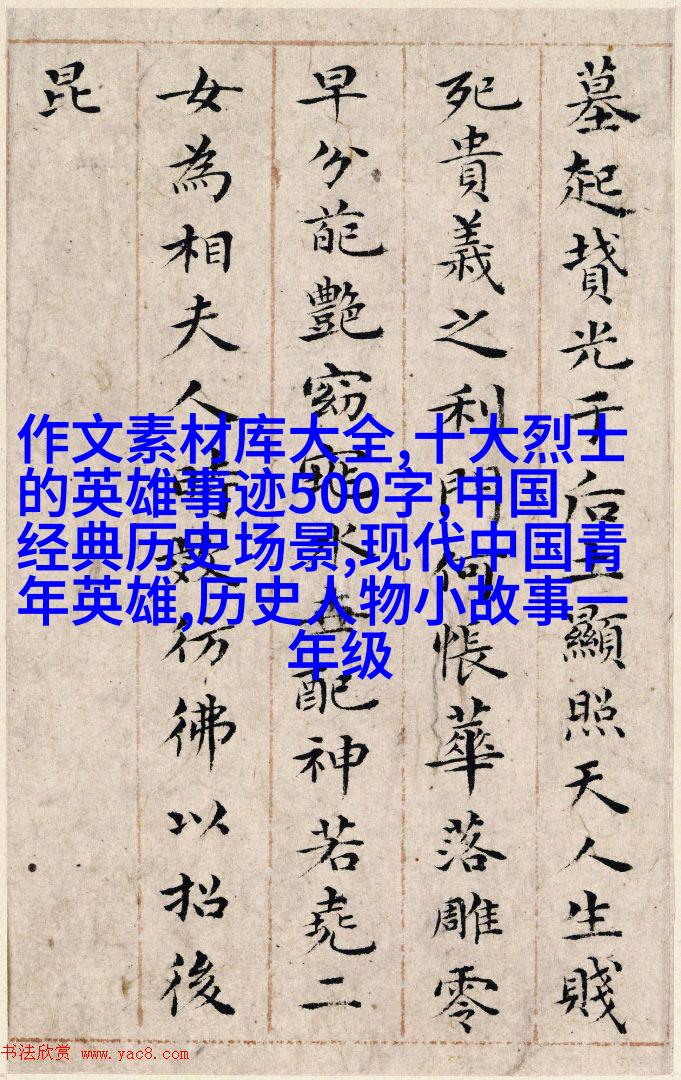 墓起墳光于后土顯照天人生賤
死貴義之利門何悵華落雕零
早分葩艷窈窕永世配神若堯二
女為相夫人時效仿彿以招後
昆
作文素材库大全,十大烈士
的英雄事迹500字,中国
经典历史场景,现代中国青
年英雄,历史人物小故事一
年级
书法欣赏 www.yac8.com